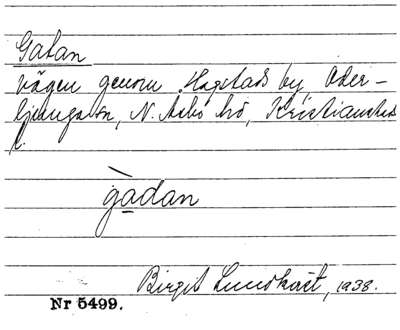 Gatan
vägen genom Hagstads by, Oder-
ljunga sn, N. Åsbo hd, Kristianstads
l.
gadan
Birgit Lundkvist, 1938.
Nr 5499.